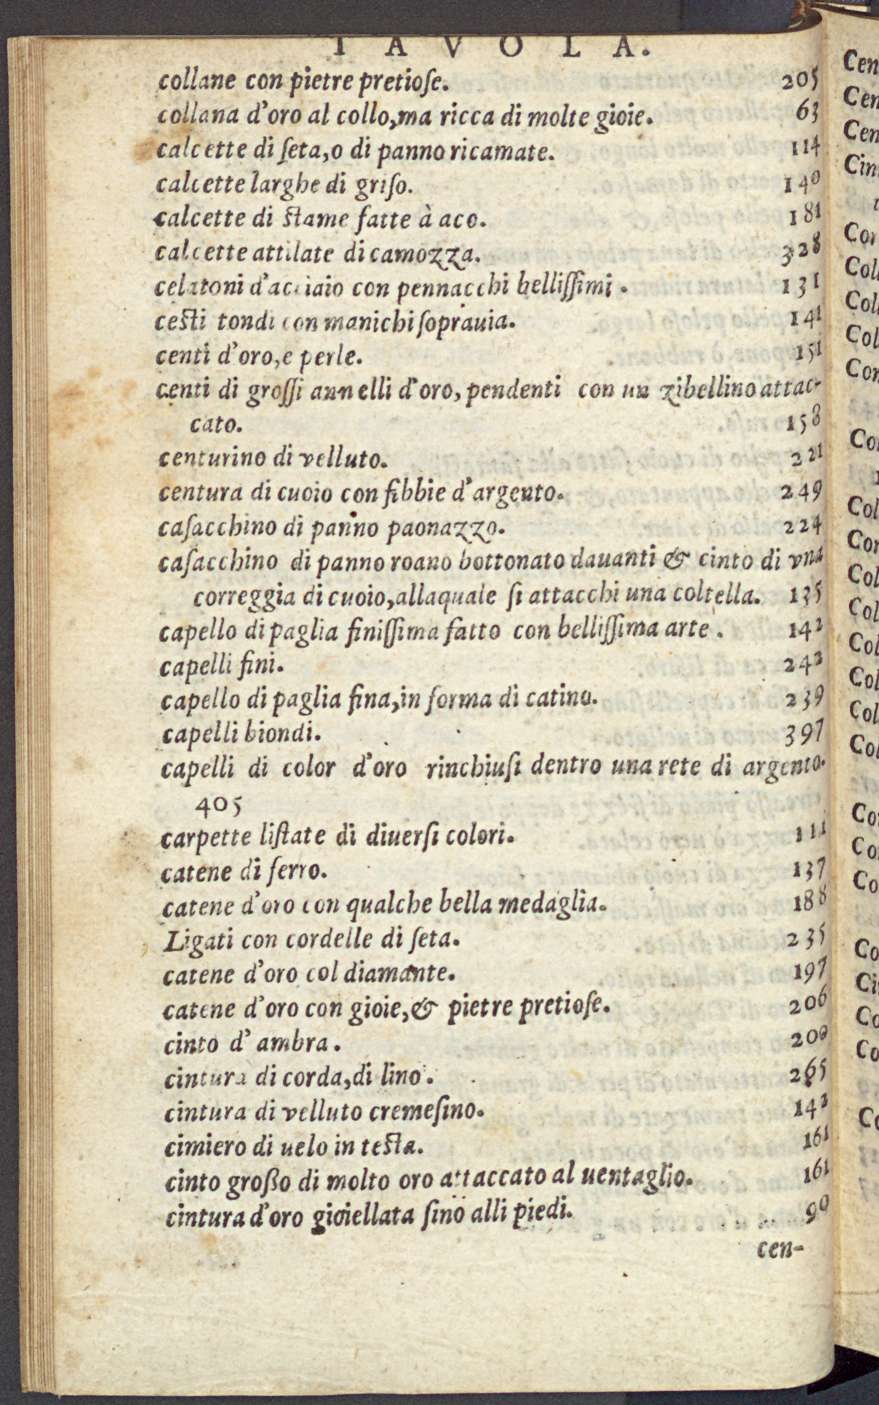 TAVOLA.
collane con pietre pretiose. 205
collana d'oro al collo, ma ricca di molte gioie. 63
calcette di seta, o di panno ricamate. 114
calcette larghe di griso. 140
calcette di stame fatte à aco. 181
calcette attilate di camozza. 328
celatoni d'acciaio con pennacchi bellissimi. 131
cesti tondi con manichi soprauia. 141
centi d'oro, e perle. 151
centi di grossi annelli d'oro, pendenti con un zibellino attac-
cato. 158
centurino di velluto. 221
centura di cuoio con fibbie d'argento. 249
casacchino di panno paonazzo. 224
casacchino di panno roano bottonato dauanti & cinto di vna
correggia di cuoio, allaquale si attacchi una coltella. 135
capello di paglia finissima fatto con bellissima arte. 142
capelli fini. 242
capello di paglia fina, in forma di catino. 239
capelli biondi. 397
capelli di color d'oro rinchiusi dentro una rete di argento.
405
carpette listate di diuersi colori. 111
catene di ferro. 137
catene d'oro con qualche bella medaglia. 188
Ligati con cordelle di seta. 235
catene d'oro col diamante. 197
catene d'oro con gioie, & pietre pretiose. 206
cinto d'ambra. 200
cintura di corda, di lino. 265
cintura di velluto cremesino. 142
cimiero di uelo in testa. 161
cinto großo di molto oro attaccato al uentaglio. 161
cintura d'oro gioiellata sino alli piedi. 90
cen-
Cen
Cen
Cen
Cin
Col
Col
Col
Con
Col
Col
Col
Col
Col
Col
Col
Co
Co
Co
Ci
Co
Co